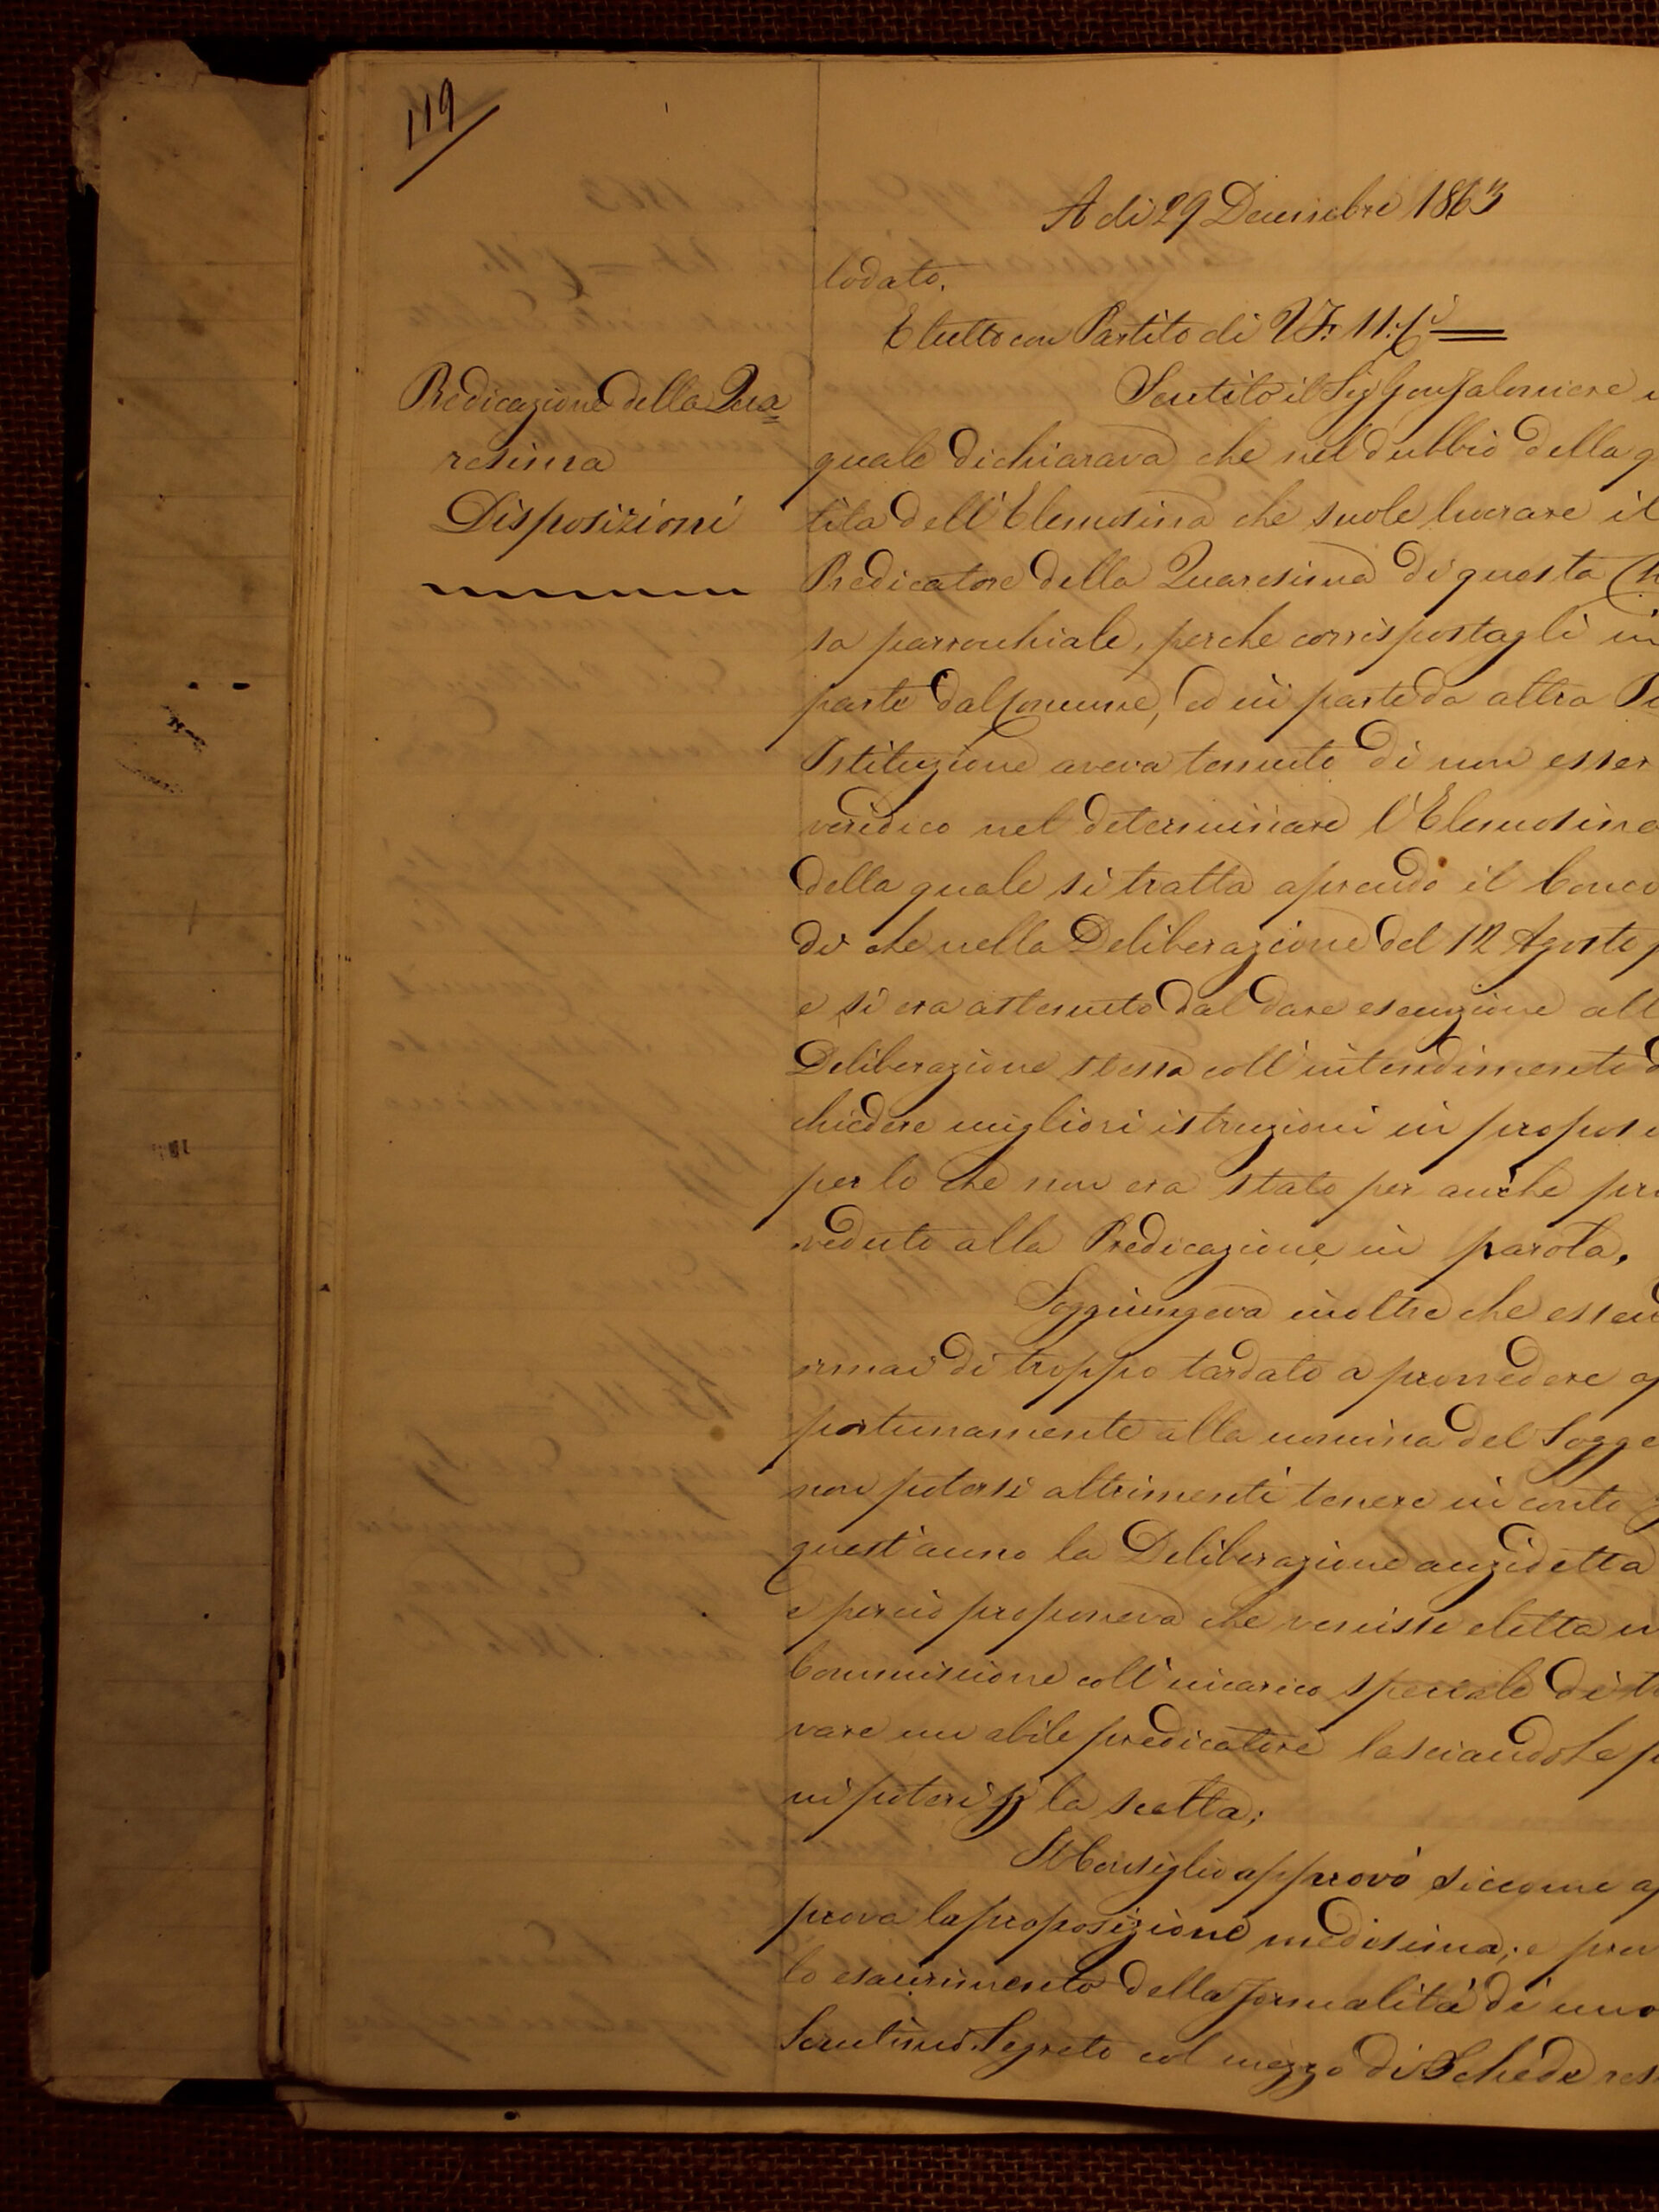 119
A di 29 Decembre 1863
lodato.
E tutto con Partito di VF. 11. Ci
Predicazione della Qua=
resima
Disposizioni
Sentito il Sig Gonfaloniere i
quale dichiarava che nel dubbio della q
tità dell'Elemosina che suole lucrare il
Predicatore della Quaresima di questa Ch
sa parrochiale, perche corrispostagli in
parte dal Comune, ed in parte da altra Pi
Istituzione aveva temuto di non esser
veridico nel determinare l'Elemosina
della quale si tratta aprendo il Conco
di che nella Deliberazione del 12 Agosto p
e si era astenuto dal dare esecuzione all
Deliberazione stessa coll'intendimento d
chiedere migliori istruzioni in proposi
per lo che non era stato per anche pro
veduto alla Predicazione in parola.
Soggiungeva inoltre che essend
ormai di troppo tardato a provvedere op
portunamente alla nomina del Sogge
non potersi altrimenti tenere in conto p
quest'anno la Deliberazione anzidetta
e perciò proponeva che venisse eletta un
Commissione coll'incarico speciale di tr
vare un abile predicatore lasciandole p
ni poteri p la scelta;
Il Consiglio approvò siccome ap
prova la proposizione medesima; e prev
lo esaurimento della formalità di uno
Scrutinio Segreto col mezzo di Schede res